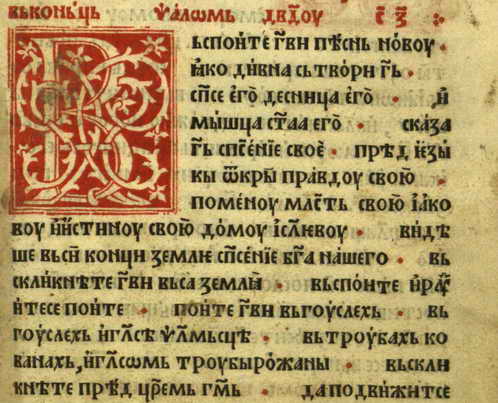 вьконьць ѱаломь дв҃доу с҃ ч҃з
Вьспоите гв҃и пѣснь новоу ·
ꙗко дивна сьтвори гь҃ ·
сп҃се его десница его · и
мышца ст҃аа его · сказа
гь҃ сп҃сенїе свое · прѣд їезы
кы ѿкры правдоу свою ·
поменоу мл҃сть свою їако
воу иистиноу свою домоу їсл҃ѥвоу · видѣ
ше вьси конци землѥ сп҃сенїе б҃га нашего · вь
скликнѣте гв҃и вьса землꙗ вьспоите ирад
итесе поите · поите гв҃и вьгоуслехь · вь
гоуслехь игл҃сѣ ѱлм҃ьсцѣ · вьтроубахь ко
ванахь, игл҃сомь троубырожаны · вьскли
кнѣте прѣд цр҃емь гм҃ь · даподвижитсе